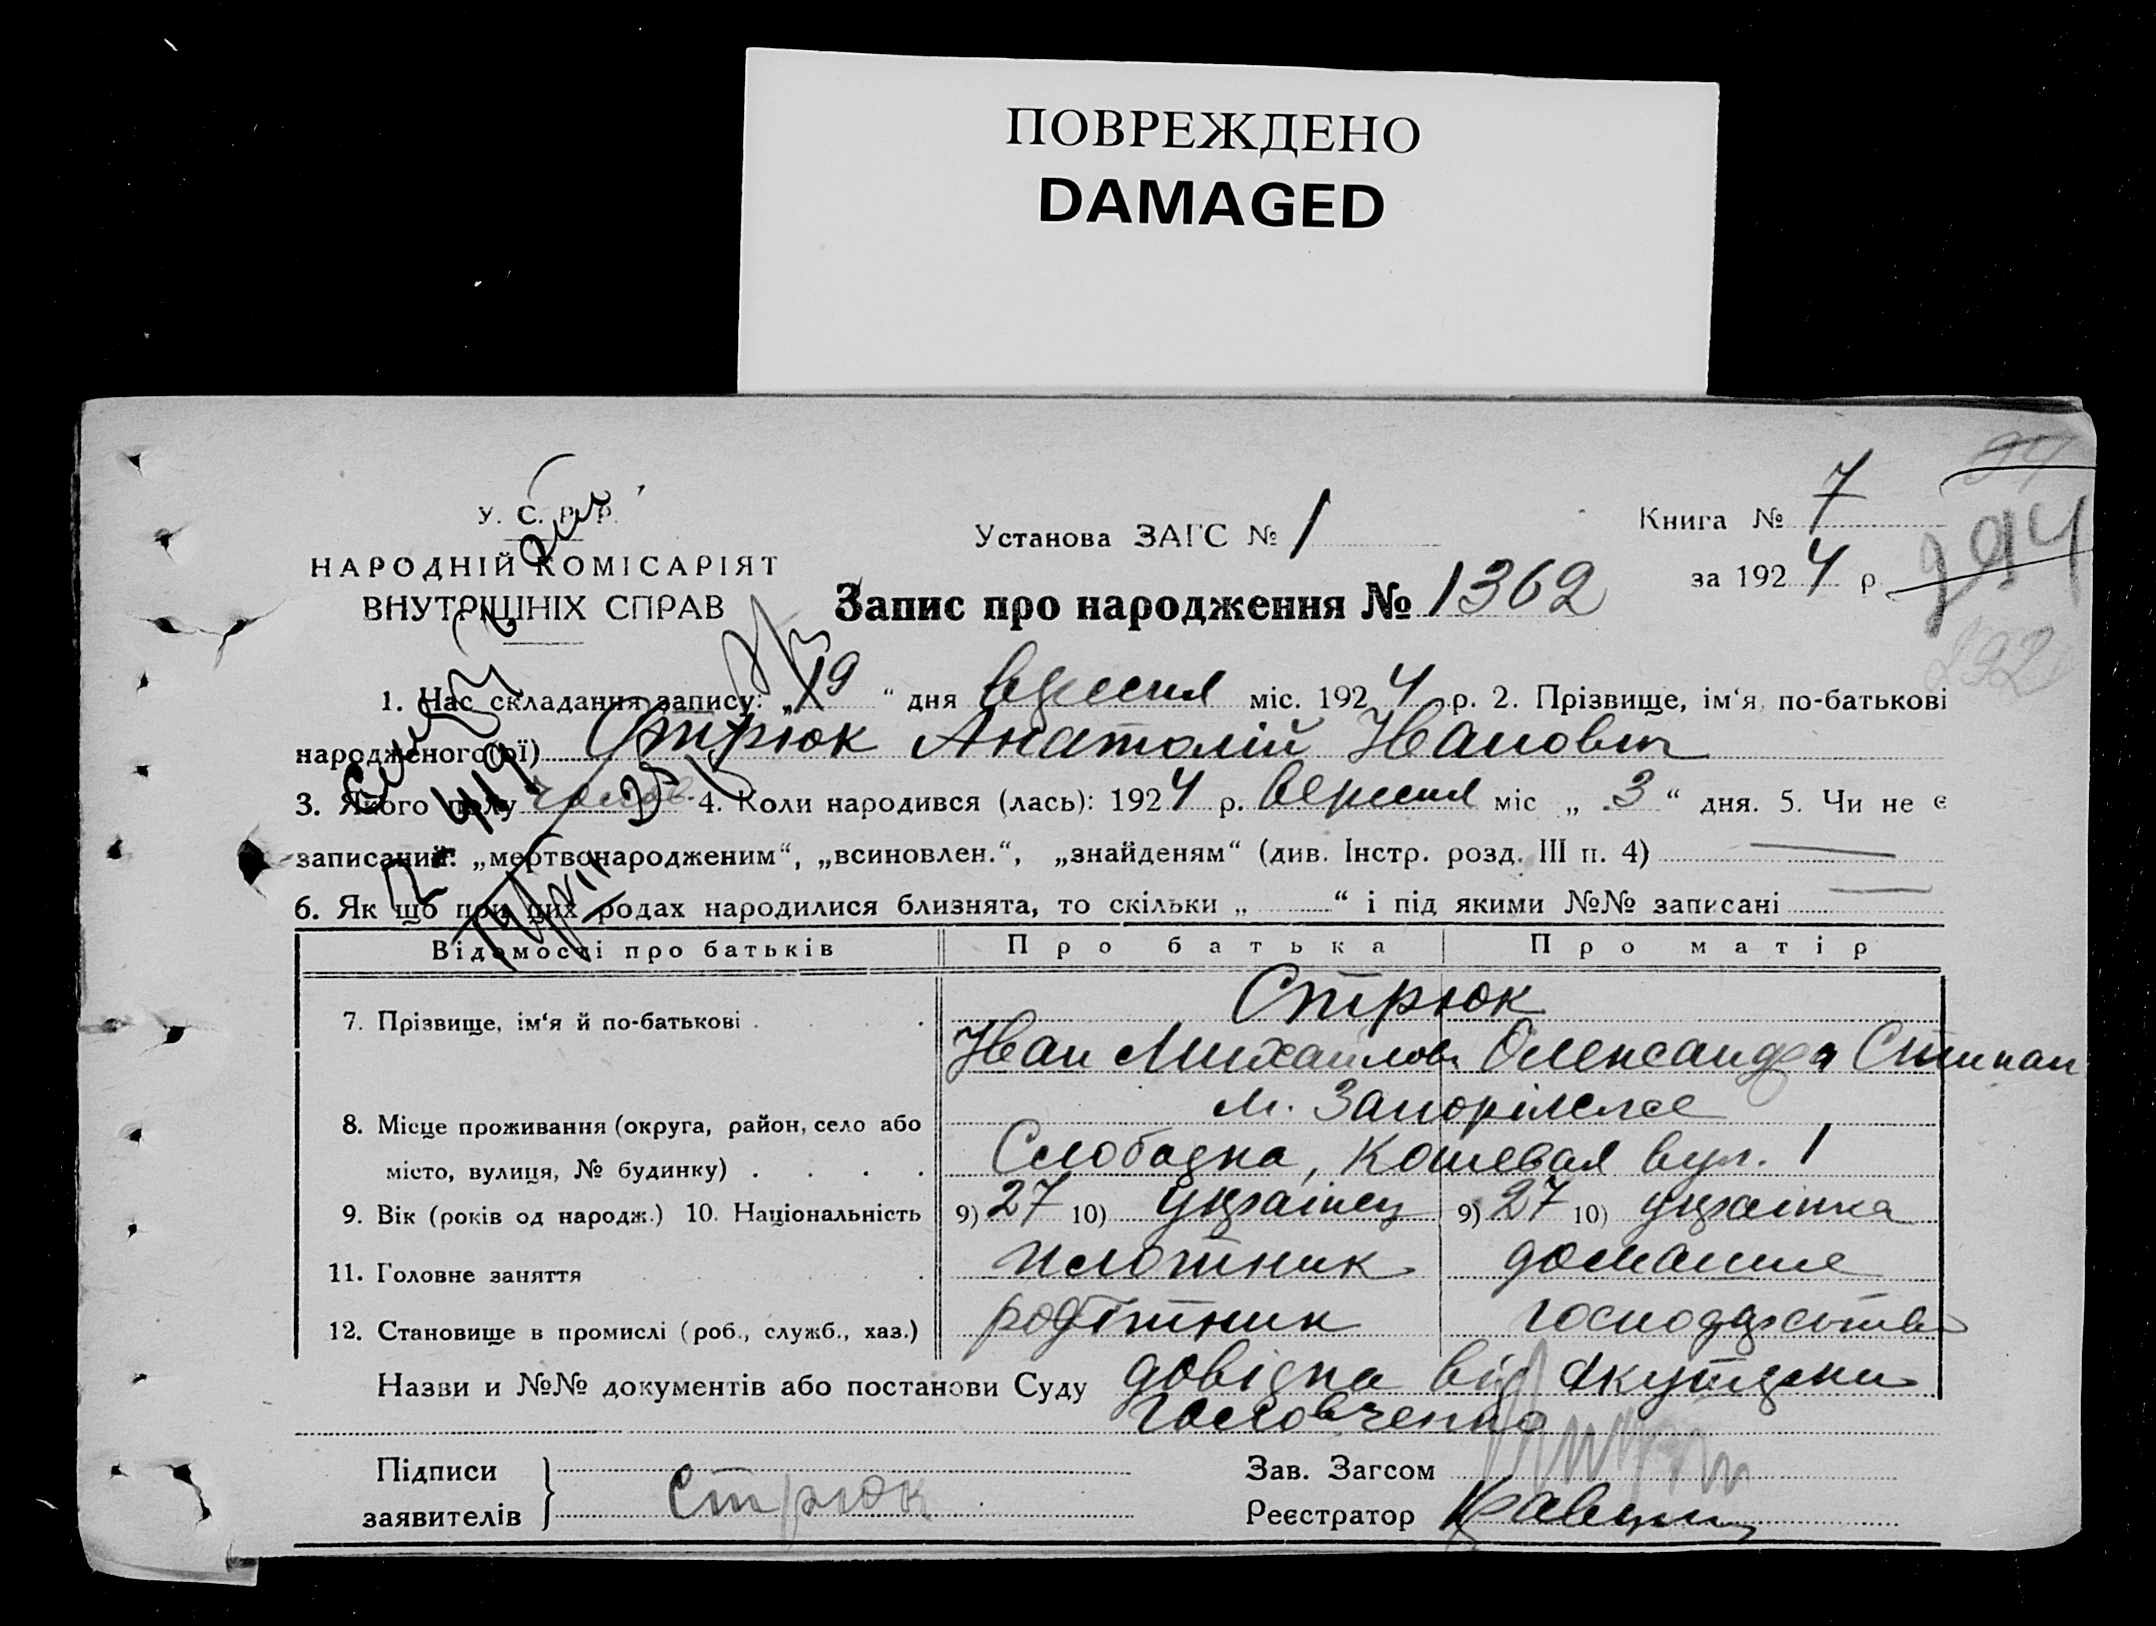 ПОВРЕЖДЕНО
DAMAGED
У. С. Р. Р.
НАРОДНІЙ КОМІСАРІЯТ
ВНУТРІШНІХ СПРАВ
Установа ЗАГС № 1
Книга № 7
за 1924 р
294
Запис про народження № 1362
1. Час складання запису: „19“ дня вересня міс. 1924 р. 2. Прізвище, ім‘я, по-батькові
народженого(ої) Стрюк Анатолій Іванович
3. Якого полу чолов. 4. Коли народився (лась): 1924 р. вересня міс „3“ дня. 5. Чи не є
записаний: „мертвонародженим“, „всиновлен.“, „знайденям“ (див. Інстр. розд. III п. 4) —
6. Як що при цих родах народилися близнята, то скільки „ “ і під якими №№ записані —
Відомості про батьків Про батька Про матір
Стрюк
7. Прізвище, ім‘я й по-батькові
Іван Михайлов Олександра Степан
м. Запоріжжє
8. Місце проживання (округа, район, село або
місто, вулиця, № будинку) Слободка, Кошевая вул. 1
9. Вік (років од народж.) 10. Національність 9) 27 10) українец 9) 27 10) українка
11. Головне заняття плотник домашнє
12. Становище в промислі (роб., служб., хаз.) робітник господарство
Назви и №№ документів або постанови Суду довідка від акушерки
Головченко
Підписи
заявителів } Стрюк
Зав. Загсом
Реєстратор